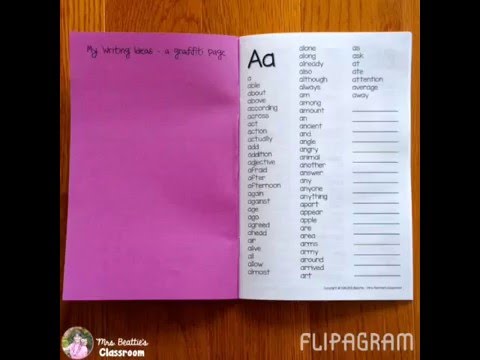 My Writing Ideas - a graffiti page
Aa
a
able
about
above
according
across
act
action
actually
add
addition
adjective
afraid
after
afternoon
again
against
age
ago
agreed
ahead
air
alive
all
allow
almost
alone
along
already
also
although
always
am
among
amount
an
ancient
and
angle
angry
animal
another
answer
any
anyone
anything
apart
appear
apple
are
area
arms
army
around
arrived
art
as
ask
at
ate
attention
average
away
Mrs. Beattie's
Classroom
FLIPAGRAM